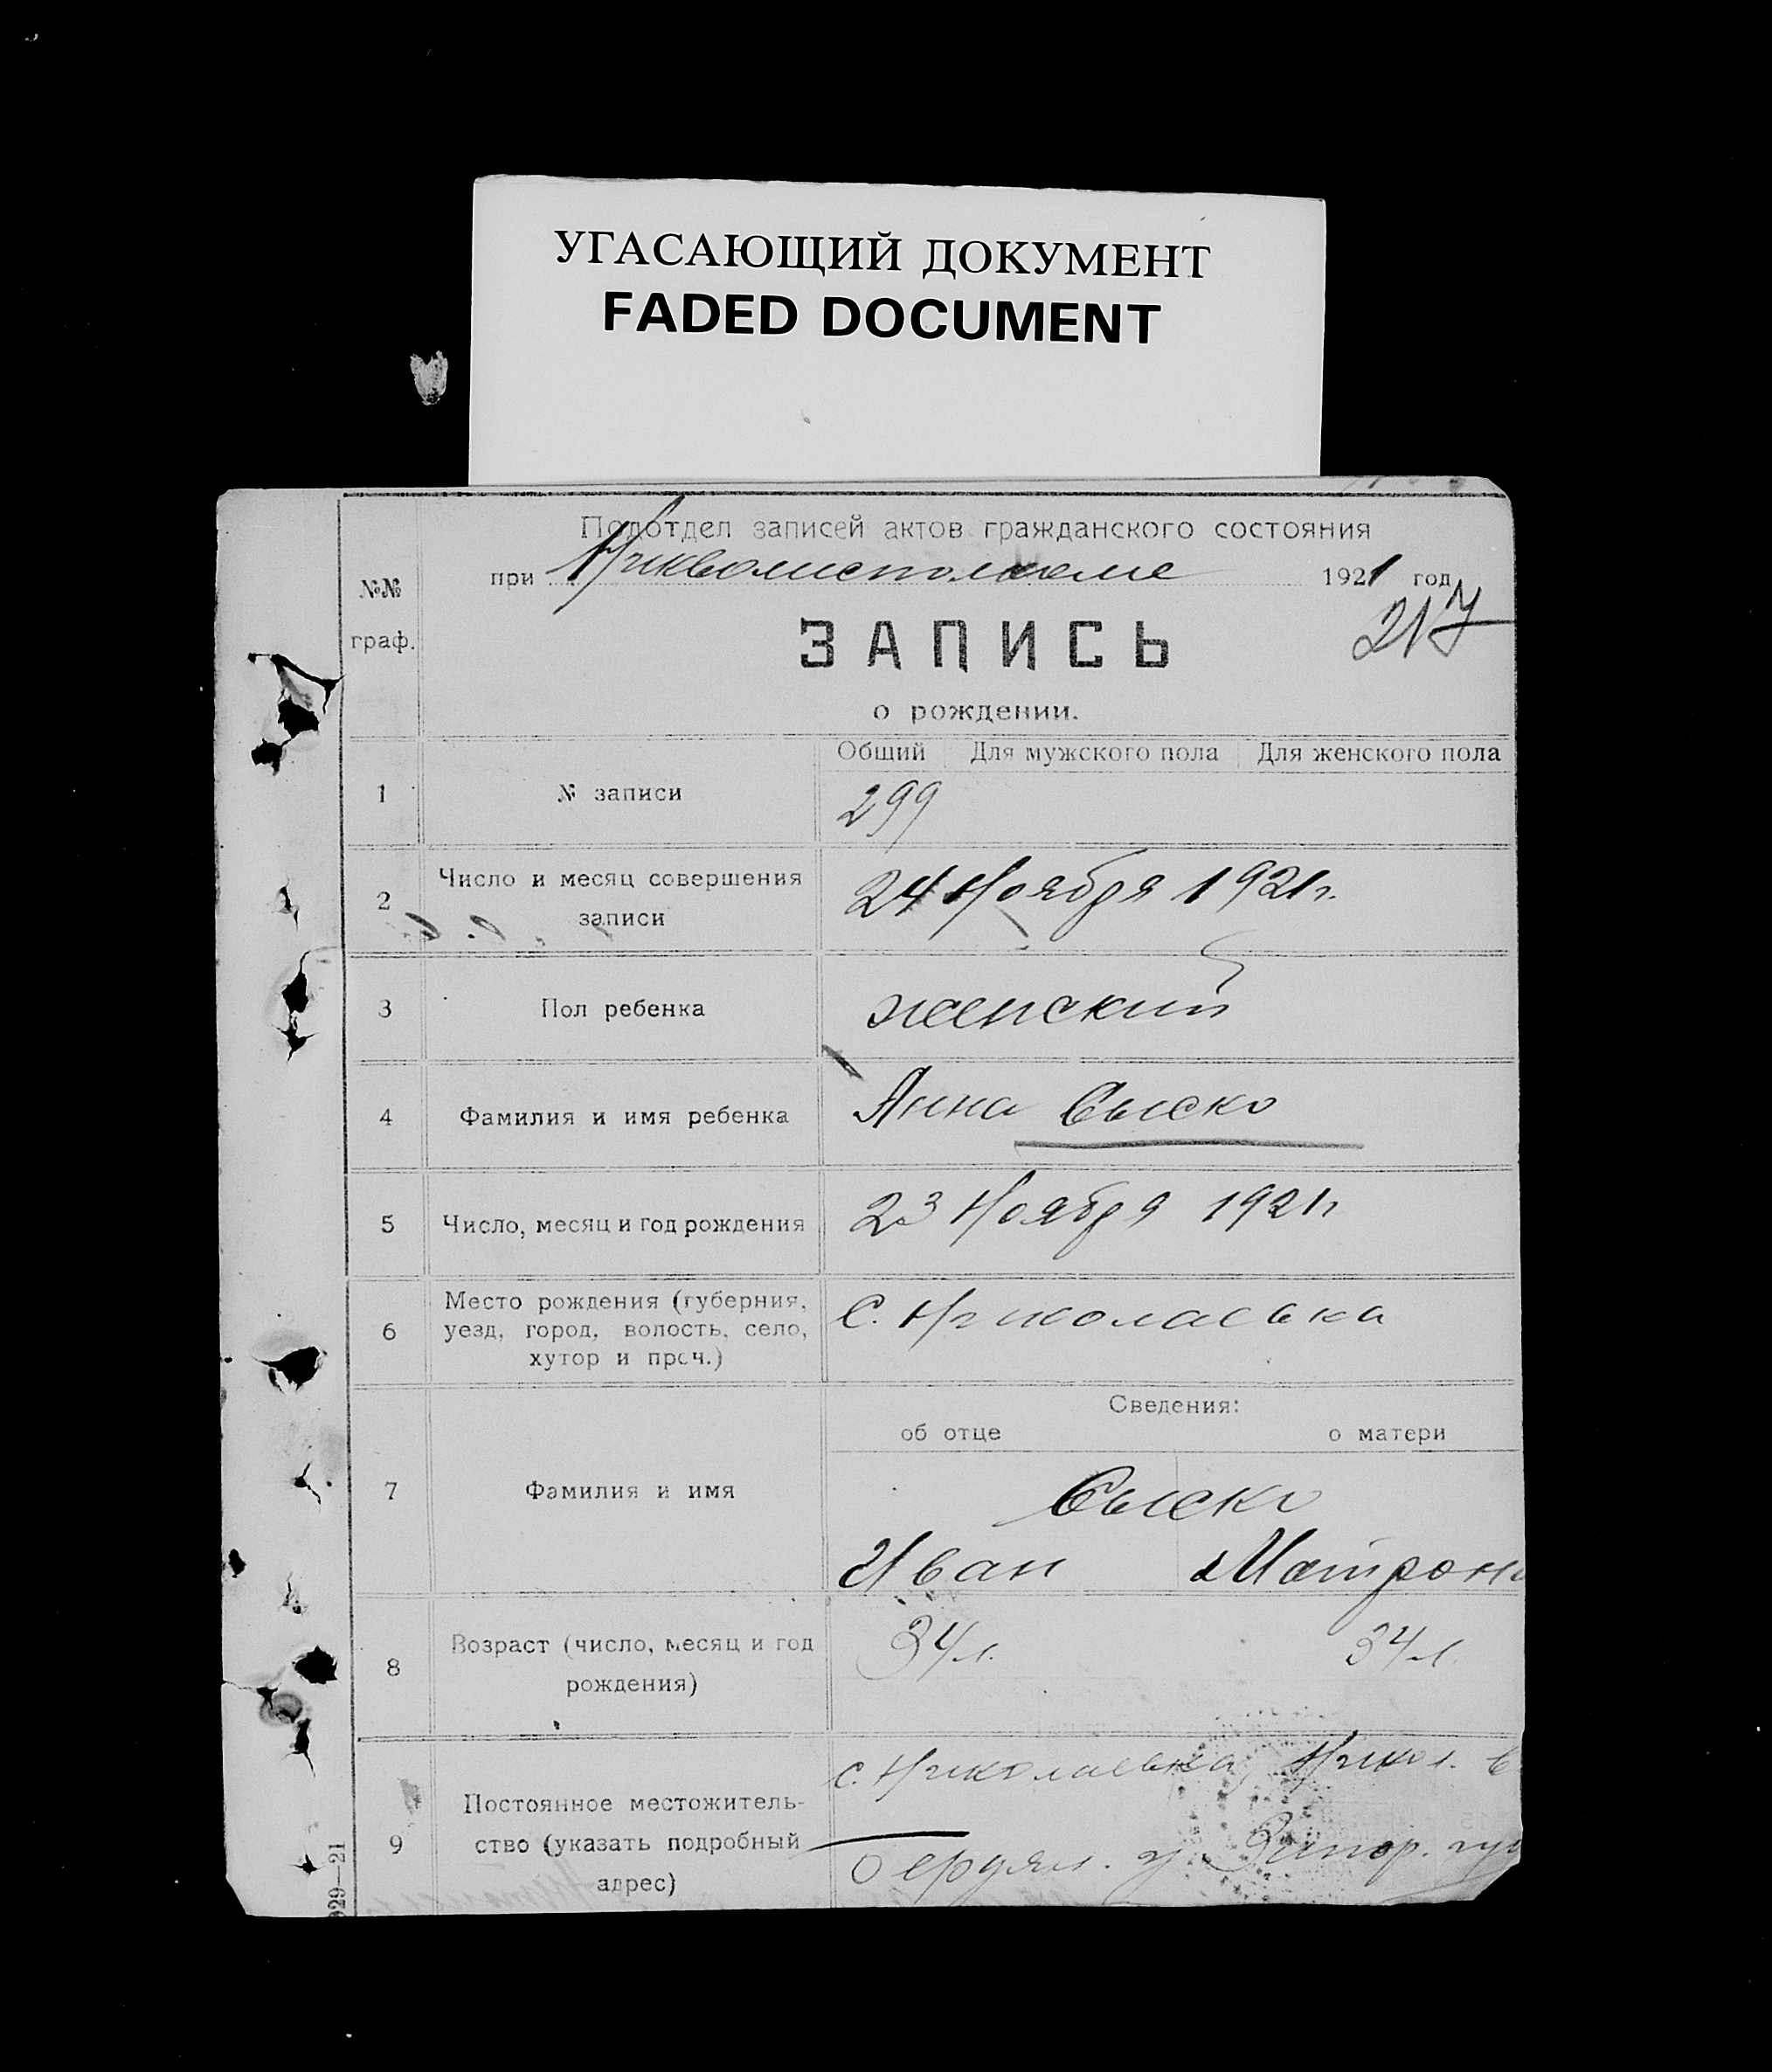 УГАСАЮЩИЙ ДОКУМЕНТ
FADED DOCUMENT
Подотдел записей актов гражданского состояния
при Никволисполкоме 1921 год
217
№№ граф.
ЗАПИСЬ
о рождении.
Общий Для мужского пола Для женского пола
1 № записи 299
2 Число и месяц совершения записи 24 Ноября 1921 г.
3 Пол ребенка женский
4 Фамилия и имя ребенка Анна Сыско
5 Число, месяц и год рождения 23 Ноября 1921 г
6 Место рождения (губерния, уезд, город, волость, село, хутор и проч.) С. Николаевка
Сведения:
об отце о матери
7 Фамилия и имя Сыско
Иван Матрона
8 Возраст (число, месяц и год рождения) 34 л. 34 л.
9 Постоянное местожительство (указать подробный адрес) с. Николаевка, Никол. в
Бердян. у Запор. губ
929—21